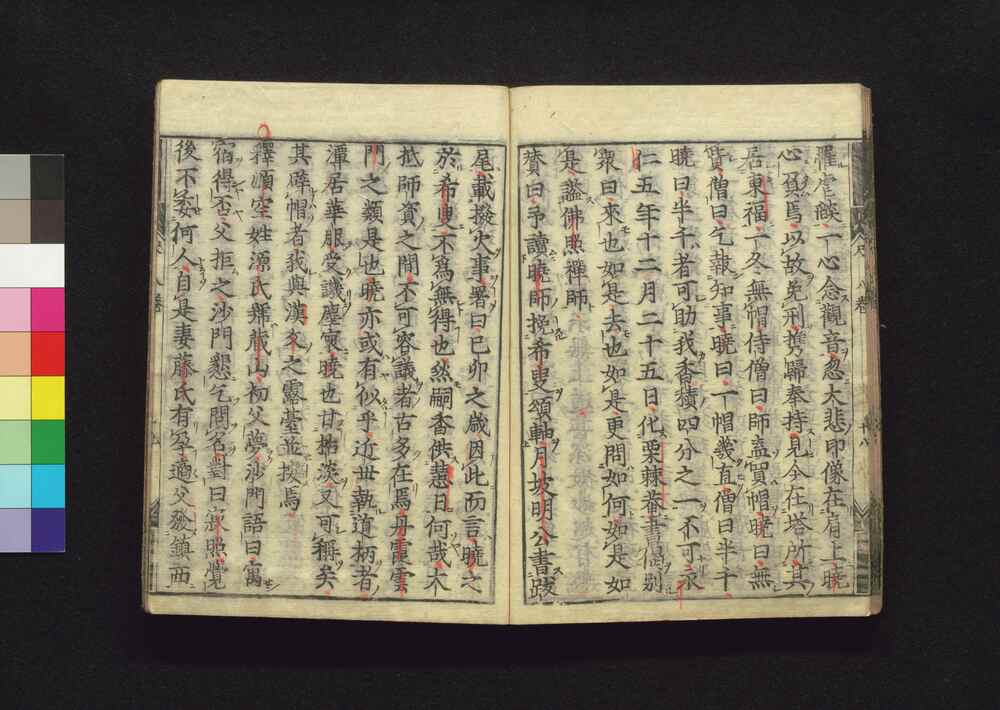 羅虐燄一心念觀音忽大悲印像在肩上曉
心異焉以故免刑携歸奉持見今在塔所其
居東福一冬無帽侍僧曰師盍買帽曉曰無
貲僧曰乞報知事曉曰一帽幾直僧曰半千
曉曰半千者可助我香積四分之一不可永
仁五年十二月二十五日化栗棘菴書偈別
衆曰來也如是去也如是更問如何如是如
是謚佛照禪師
賛曰予讀曉師挽希叟頌軸月坡明公書跋
尾載撥火事署曰己卯之歳因此而言曉之
於希叟不爲無得也然嗣香供慧日何哉大
抵師資之間不可容議者古多在焉丹霞雲
門之類是也曉亦或有似乎近世執道柄者
潭居華服受譏塵寰曉也甘枯淡又可稱矣
其僻帽者我與漢文之露臺並按焉
釋順空姓源氏號藏山初父夢沙門語曰寓
宿得否父拒之沙門懇乞問名對曰寂照覺
後不委何人自是妻藤氏有孕適父發鎮西